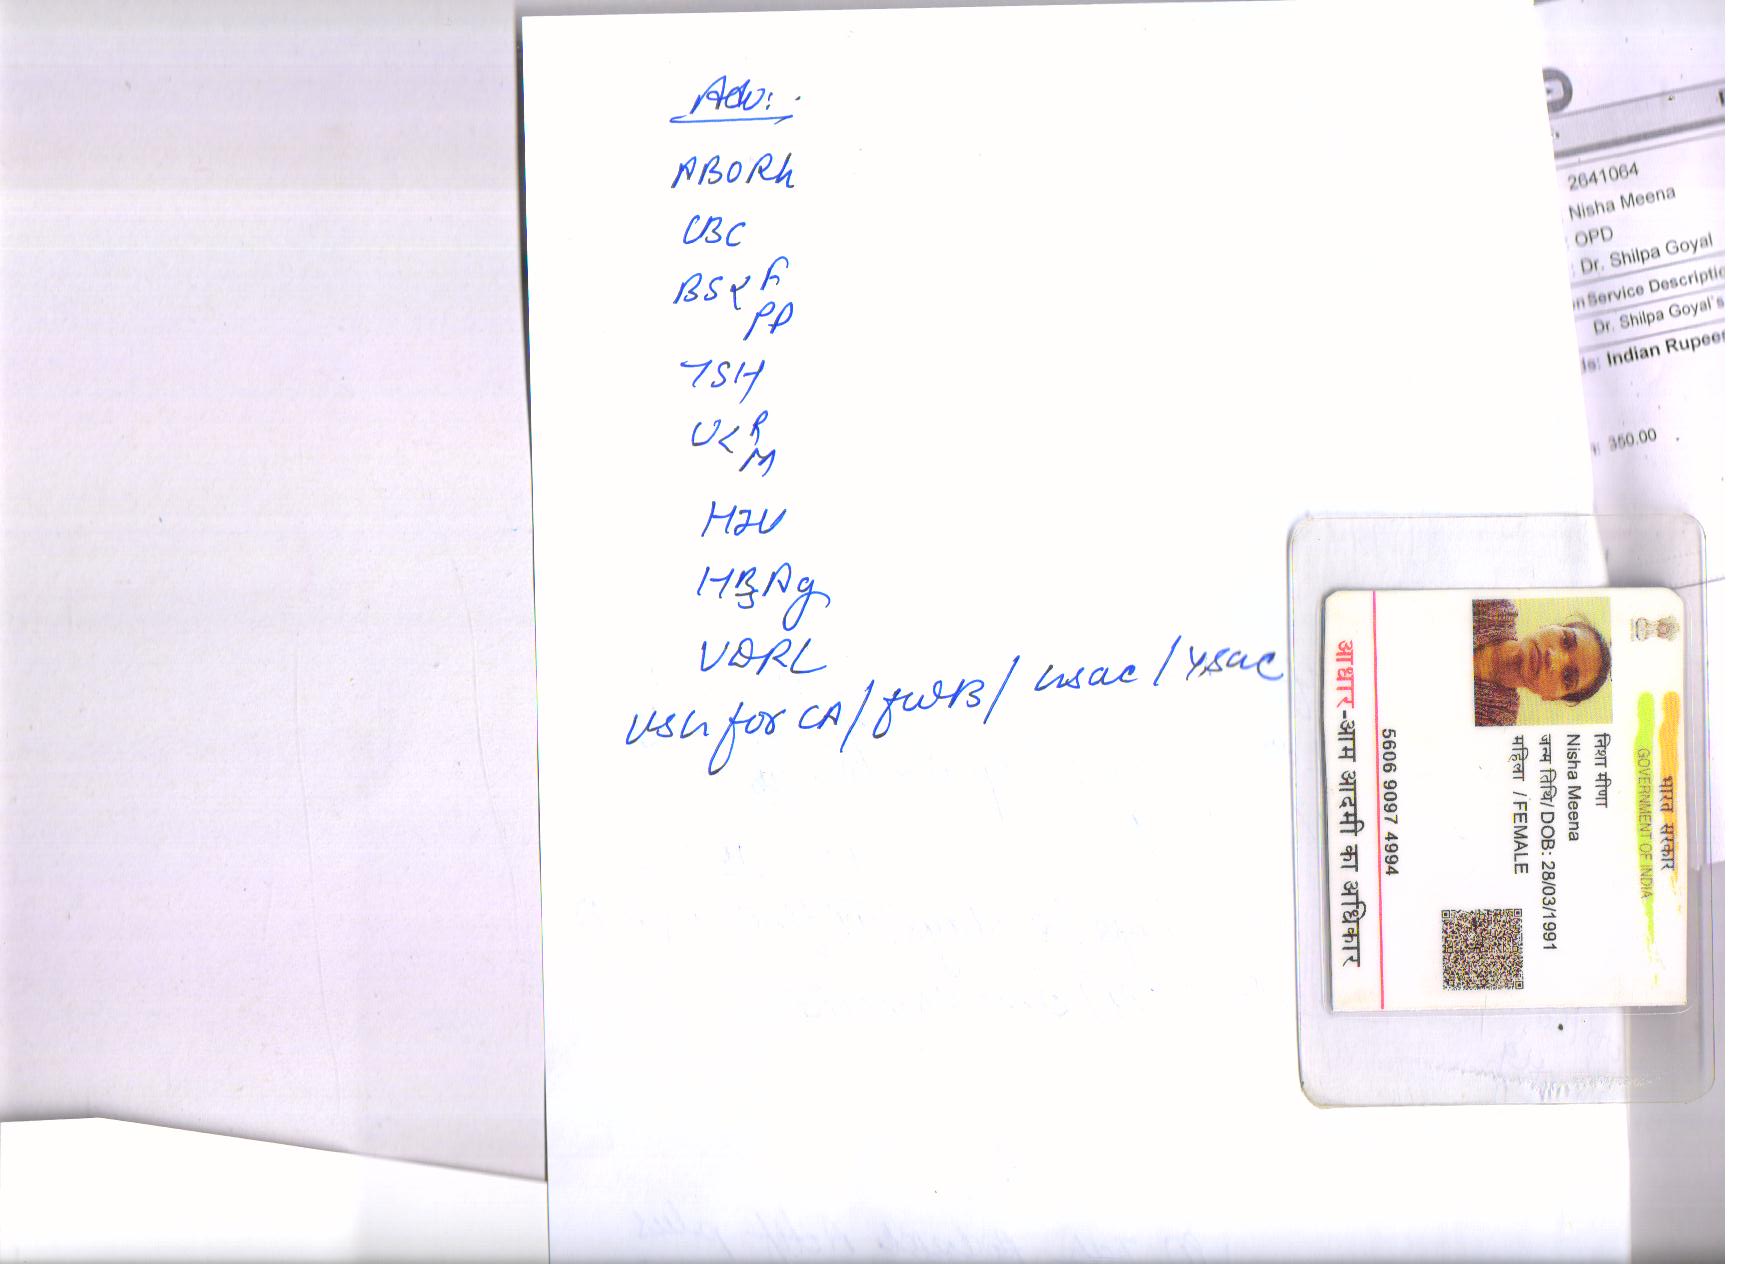 Adv:
ABORh
CBC
BS < F
PP
TSH
U < R
M
HIV
HBsAg
VDRL
USG for CA / FWB /
2641064
Nisha Meena
OPD
: Dr. Shilpa Goyal
n Service Descriptio
Dr. Shilpa Goyal's
ls: Indian Rupees
350.00
भारत सरकार
GOVERNMENT OF INDIA
निशा मीणा
Nisha Meena
जन्म तिथि/ DOB: 28/03/1991
महिला / FEMALE
5606 9097 4994
आधार-आम आदमी का अधिकार